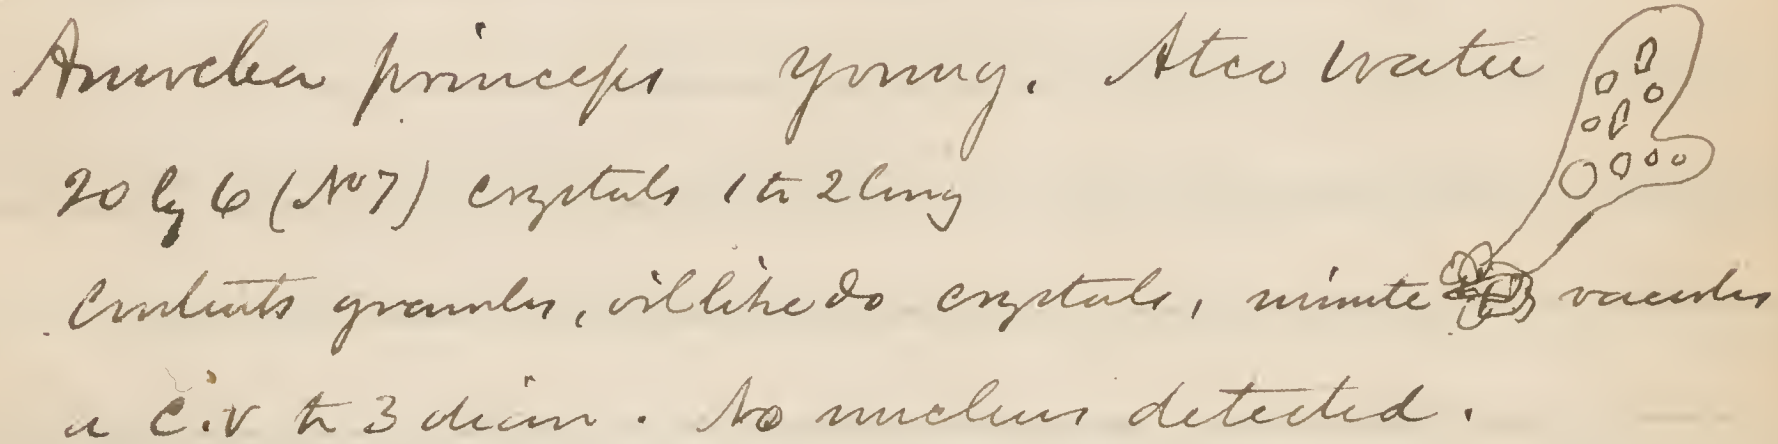 Amoeba princeps young. Atco water
20 by 6 (No 7) crystals 1 to 2 long
Contents granules, oil like do crystals, minute vacuoles
a c.v to 3 diam. No nucleus detected.